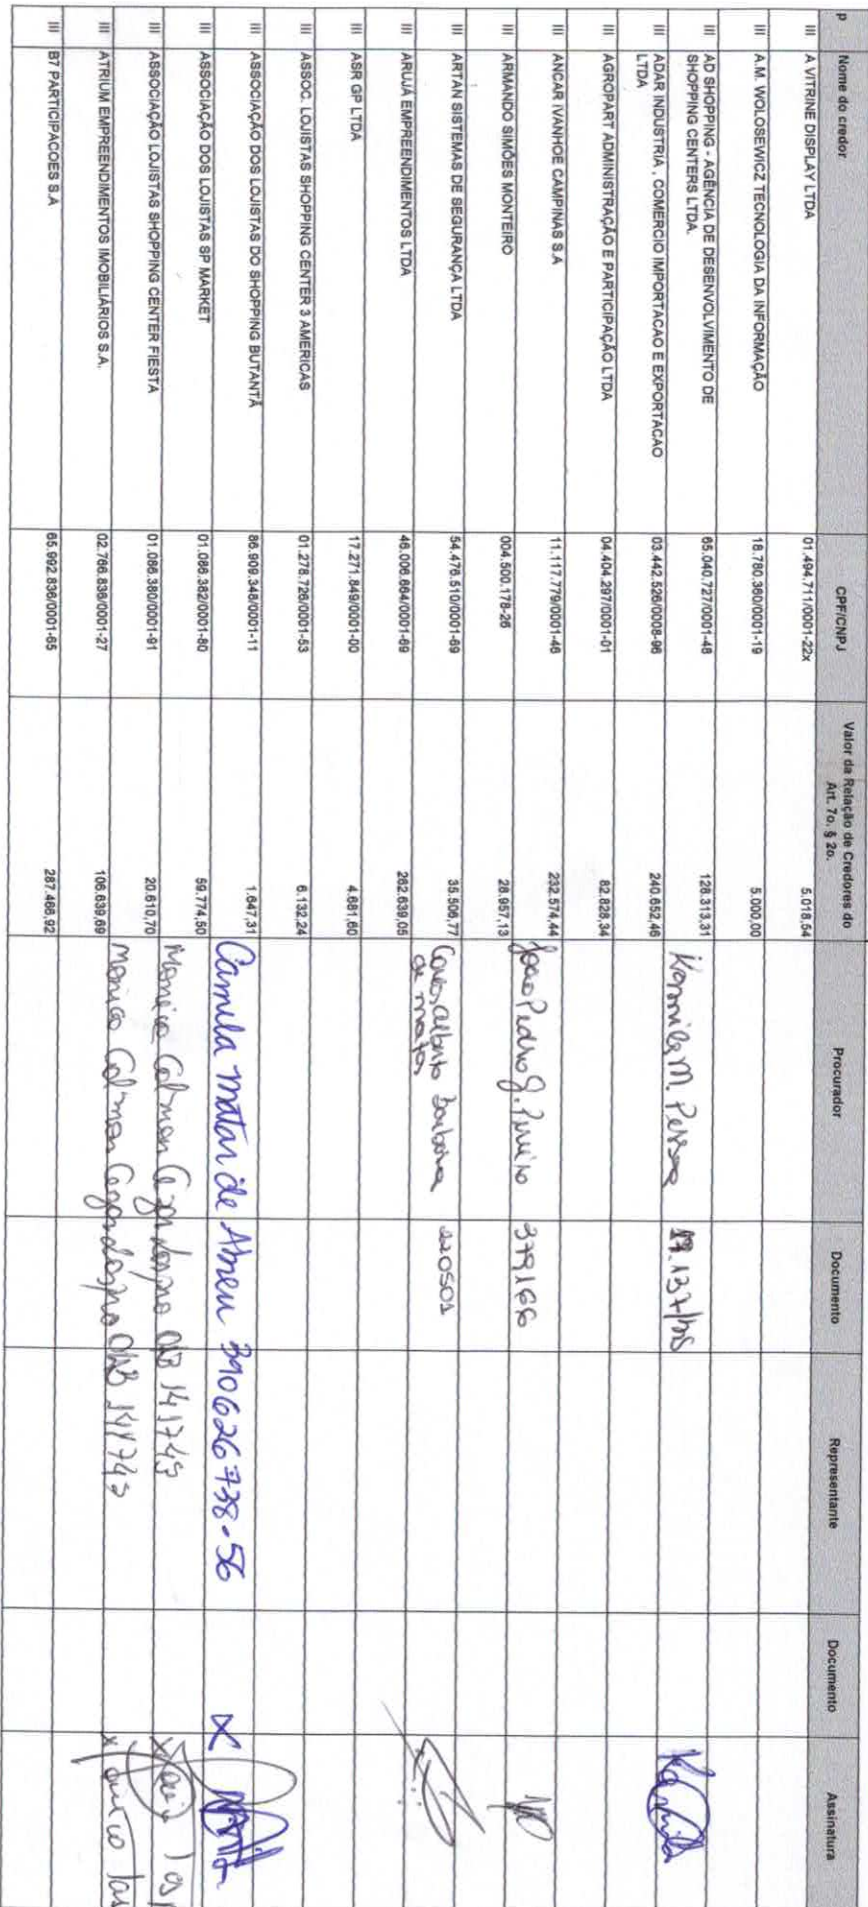 p Nome do credor CPF/CNPJ Valor da Relação de Credores do Art. 7o, § 2o. Procurador Documento Representante Documento Assinatura
III A VITRINE DISPLAY LTDA 01.494.711/0001-22x 5.018,54
III A.M. WOLOSEWICZ TECNOLOGIA DA INFORMAÇÃO 18.780.360/0001-19 5.000,00
III AD SHOPPING - AGÊNCIA DE DESENVOLVIMENTO DE
SHOPPING CENTERS LTDA. 65.040.727/0001-48 128.313,31
III ADAR INDUSTRIA , COMERCIO IMPORTACAO E EXPORTACAO
LTDA 03.442.526/0008-96 240.652,46 Kamila M. Pessoa 17.137/MS Kamila
III AGROPART ADMINISTRAÇÃO E PARTICIPAÇÃO LTDA 04.404.297/0001-01 82.828,34
III ANCAR IVANHOE CAMPINAS S.A 11.117.779/0001-46 232.574,44
III ARMANDO SIMÕES MONTEIRO 004.500.178-26 28.957,13 João Pedro J. 379166
III ARTAN SISTEMAS DE SEGURANÇA LTDA 54.476.510/0001-69 35.506,77
III ARUJÁ EMPREENDIMENTOS LTDA 46.006.664/0001-69 262.639,05 Carlos Alberto Barbosa 220501
de matos
III ASR GP LTDA 17.271.849/0001-00 4.681,60
III ASSOC. LOJISTAS SHOPPING CENTER 3 AMERICAS 01.278.726/0001-53 6.132,24
III ASSOCIAÇÃO DOS LOJISTAS DO SHOPPING BUTANTÃ 86.909.348/0001-11 1.647,31
III ASSOCIAÇÃO DOS LOJISTAS SP MARKET 01.086.382/0001-80 59.774,50 Camila matan de Abreu 390626738-56 X
III ASSOCIAÇÃO LOJISTAS SHOPPING CENTER FIESTA 01.086.380/0001-91 20.610,70 Monica OAB 141743 X
III ATRIUM EMPREENDIMENTOS IMOBILIÁRIOS S.A. 02.766.836/0001-27 106.639,69 Monica OAB 141743 X
III B7 PARTICIPACOES S.A 65.992.836/0001-65 287.466,92